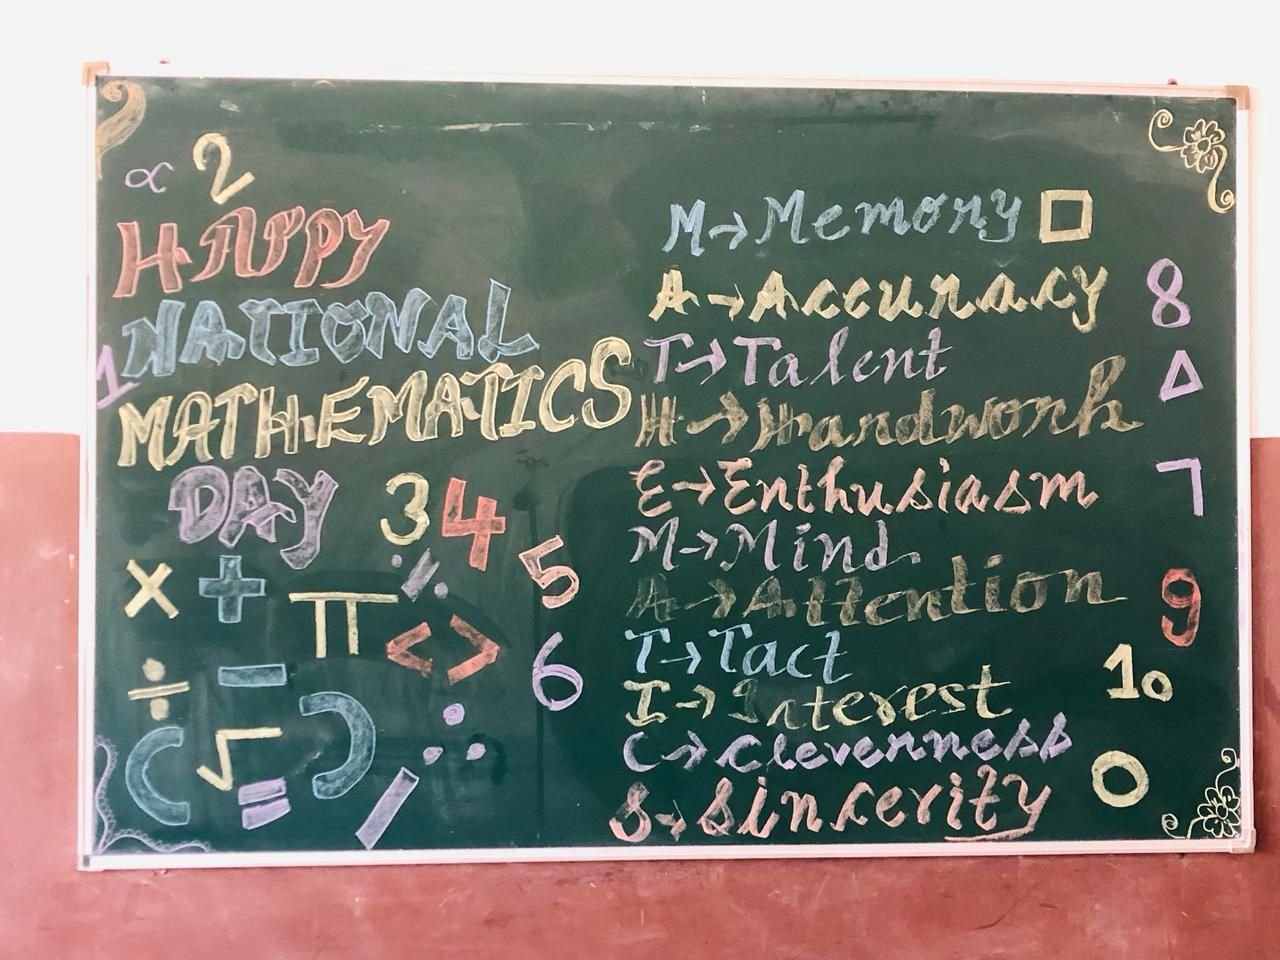 ∝ 2
HAPPY
NATIONAL
1
MATHEMATICS
DAY 3 4
× + π % < > 5
÷ − 6
( √ ) ∴
= /
M→Memory □
A→Accuracy 8
T→Talent △
H→Hardwork 7
E→Enthusiasm
M→Mind
A→Attention 9
T→Tact
I→Interest 10
C→Cleverness
S→Sincerity 0